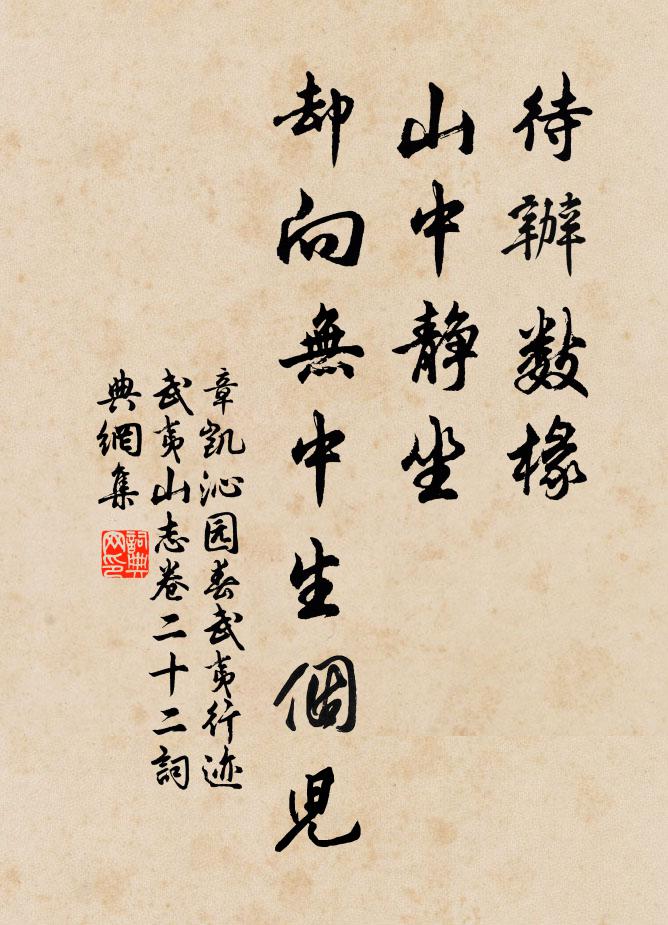 待辦數椽
山中静坐
却向無中生個児
章凯沁园春武夷行迹
武夷山志卷二十二詞
典網集
詞典网印